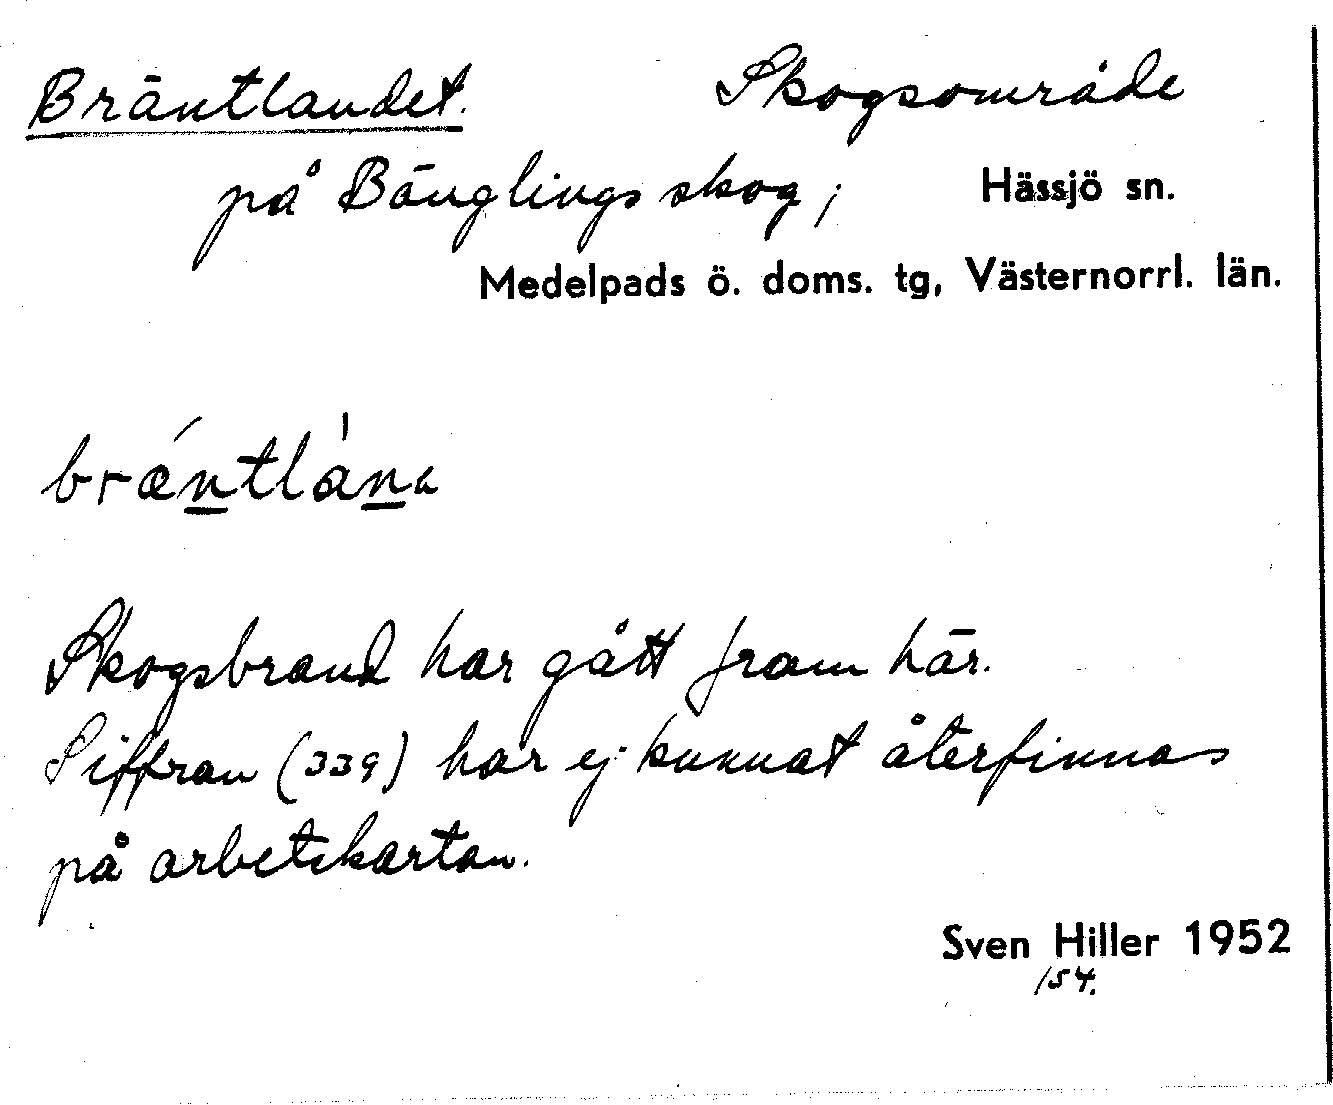 Bräntlandet. Skogsområde
på Bänglings skog; Hässjö sn.
Medelpads ö. doms. tg, Västernorrl. län.
bræ´ntlàna
Skogsbrand har gått fram här.
Siffran (339) har ej kunnat återfinnas
på arbetskartan.
Sven Hiller 1952
154.